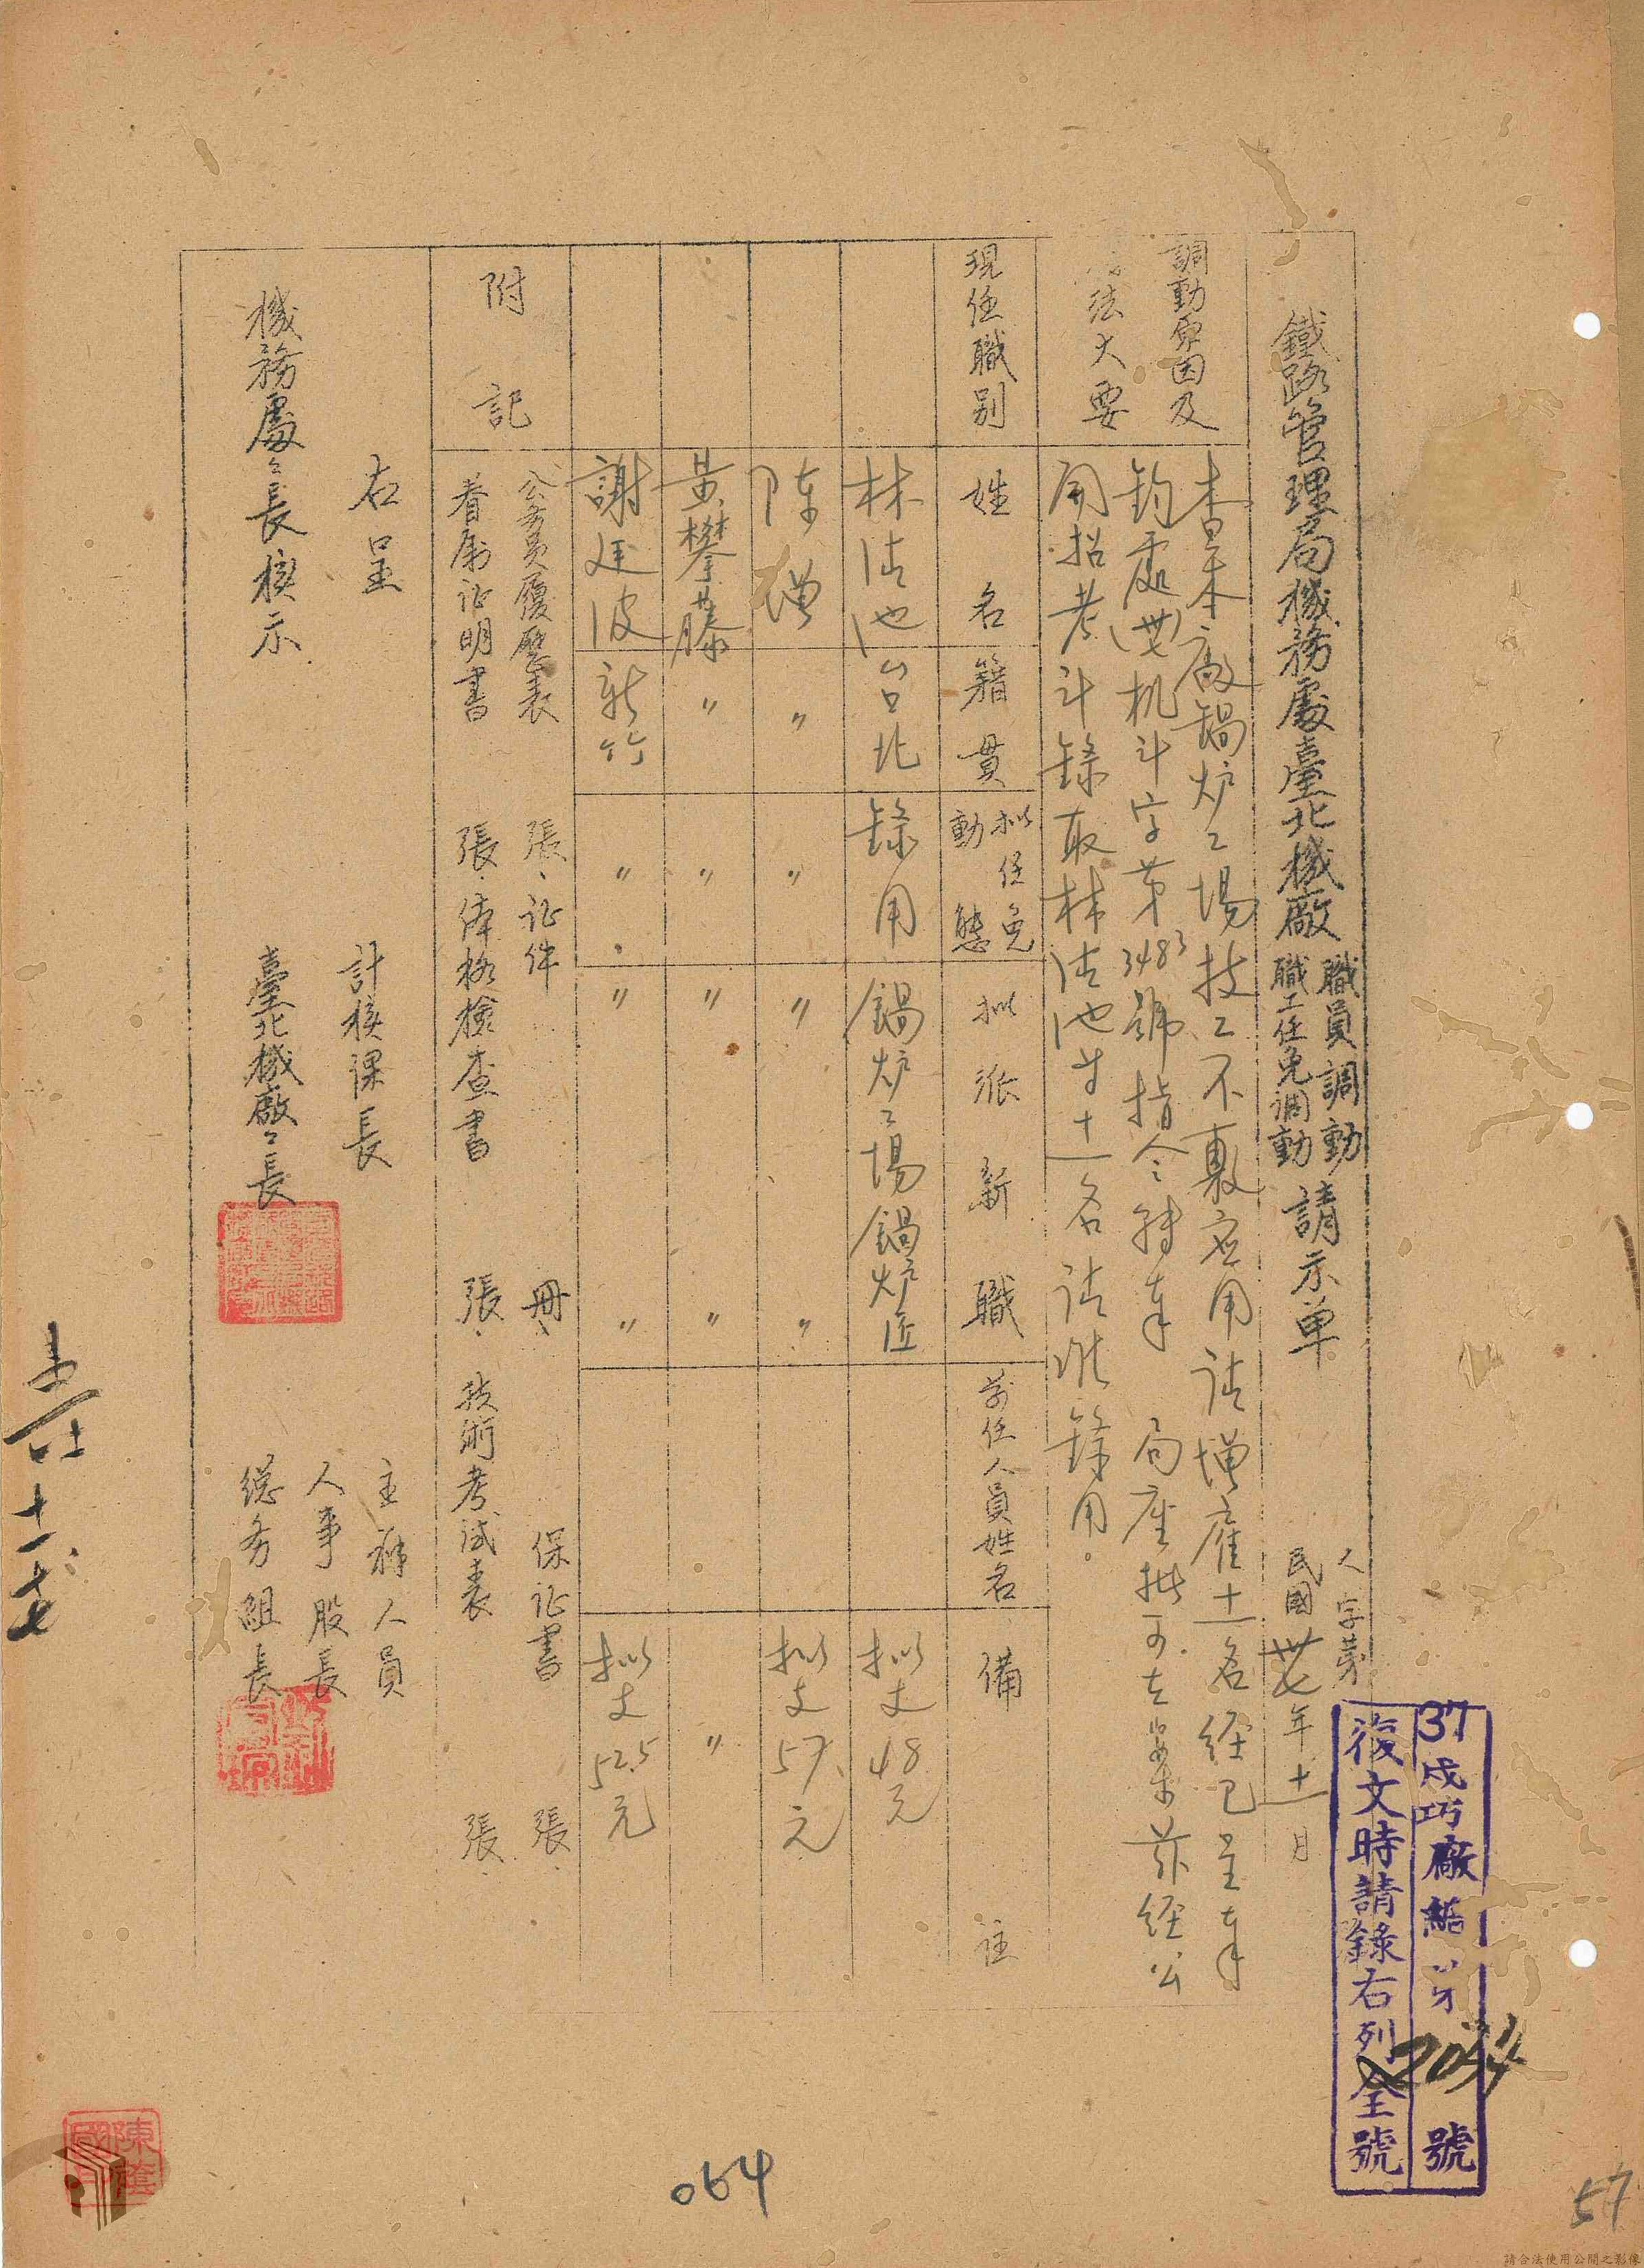 鐵路管理局機務處臺北機廠職員調動職工任免調動請示單
人字第
民國卅七年十一月
37戌巧廠 第 號
復文時請錄右列全號
調動原因及
法大要
查本廠鍋炉工場技工不敷应用請增雇十一名経已呈奉
鈞處(卅七)机計字第3483號指令轉奉 局座批可在案茲経公
開招考計錄取林清池等十一名請准錄用。
現任職別 姓名 籍貫 拟任免動態 拟派新職 前任人員姓名 備註
林清池 台北 錄用 鍋炉工場鍋炉匠 拟支48元
陳增 〃 〃 〃 〃 拟支57元
黃攀藤 〃 〃 〃 〃 〃
謝廷波 新竹 〃 〃 〃 拟支52.5元
附記
公務員履歷表 張、証件 冊、保証書 張
眷屬証明書 張、体格檢查書 張、技術考試表 張
右呈
機務處處長核示
計核課長
臺北機廠廠長
主辦人員
人事股長
総务組長
十一
064
57
請合法使用公開之影像